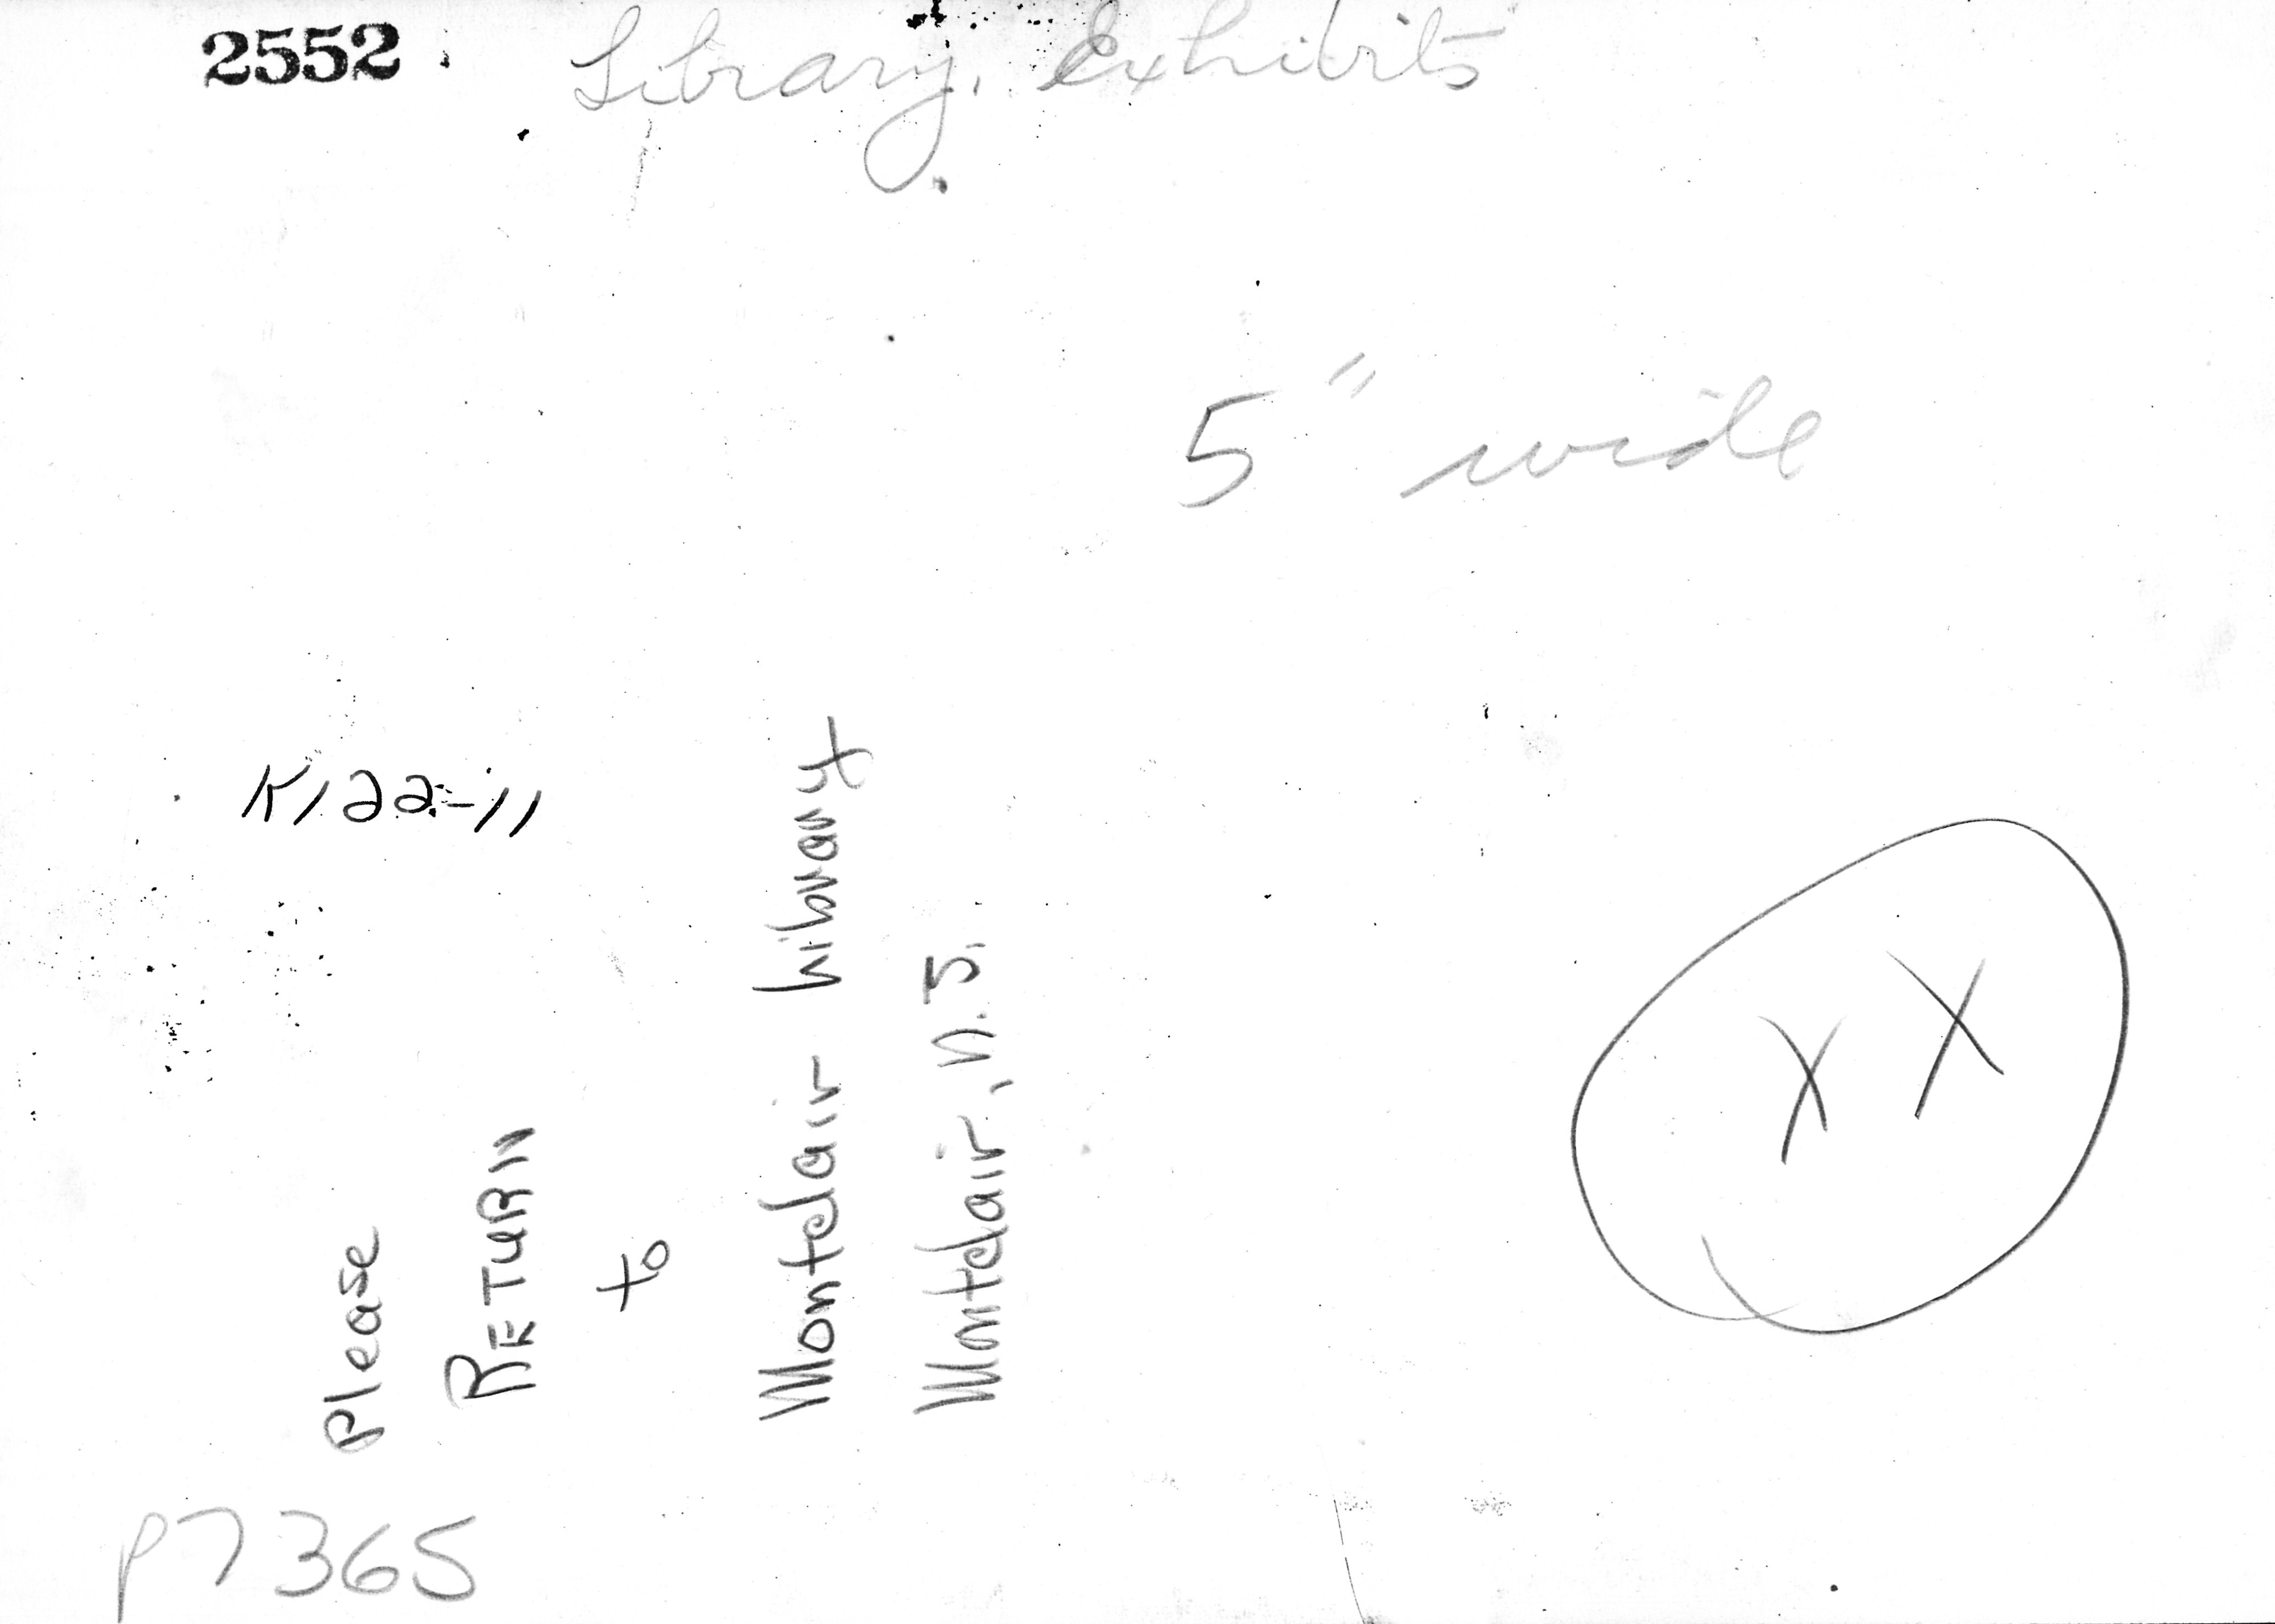 2552
Library. Exhibits
5" wide
K122-11
Please
RETURN
to
Montclair Library
Montclair, N.J.
XX
P7365